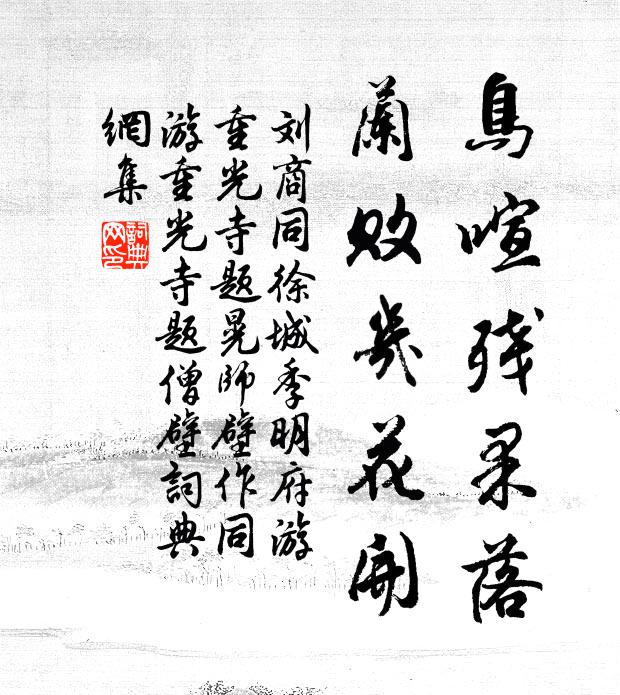 鳥喧残果落
蘭败幾花開
刘商同徐城季明府游
重光寺题晃師壁作同
游重光寺题僧壁詞典
網集
詞典
网印